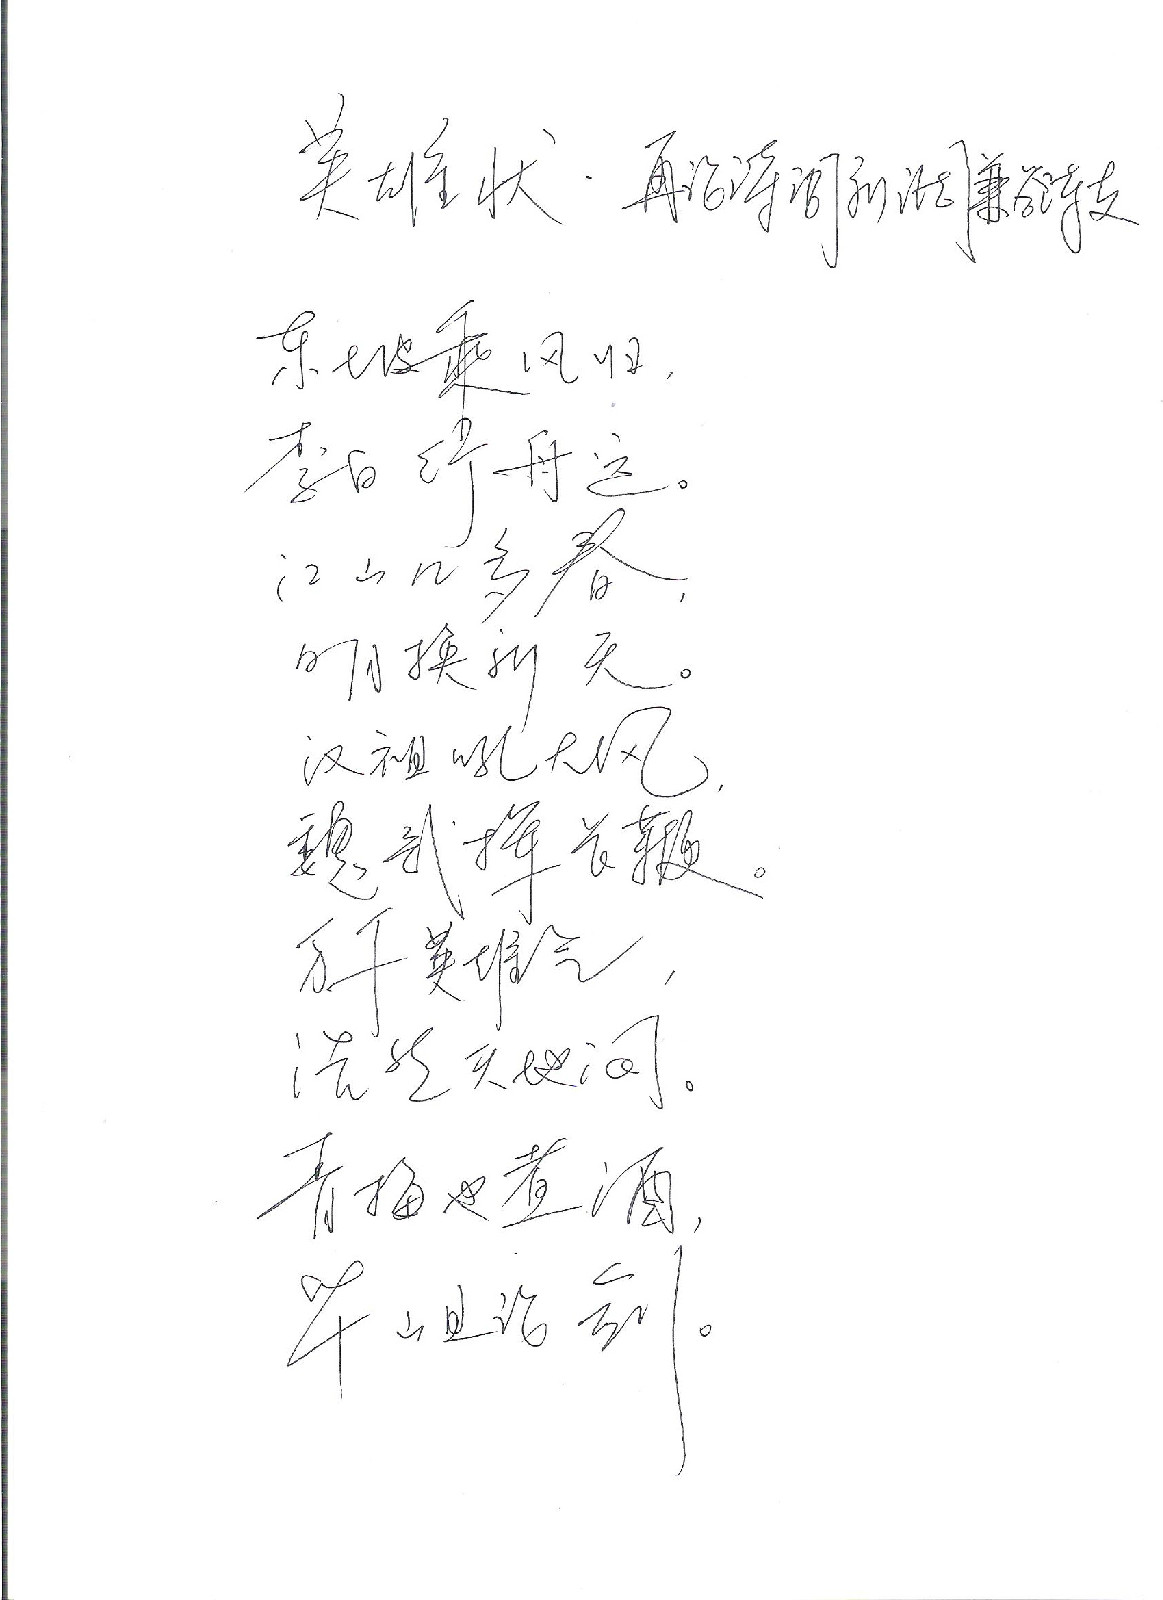 英雄状·再论诗词新法兼答诸友
东坡乘风归，
李白纤舟远。
江山几多春，
明月换新天。
汉祖吼大风，
魏武挥长鞭。
万千英雄气，
浩然天地间。
青梅也煮酒，
华山且论剑。